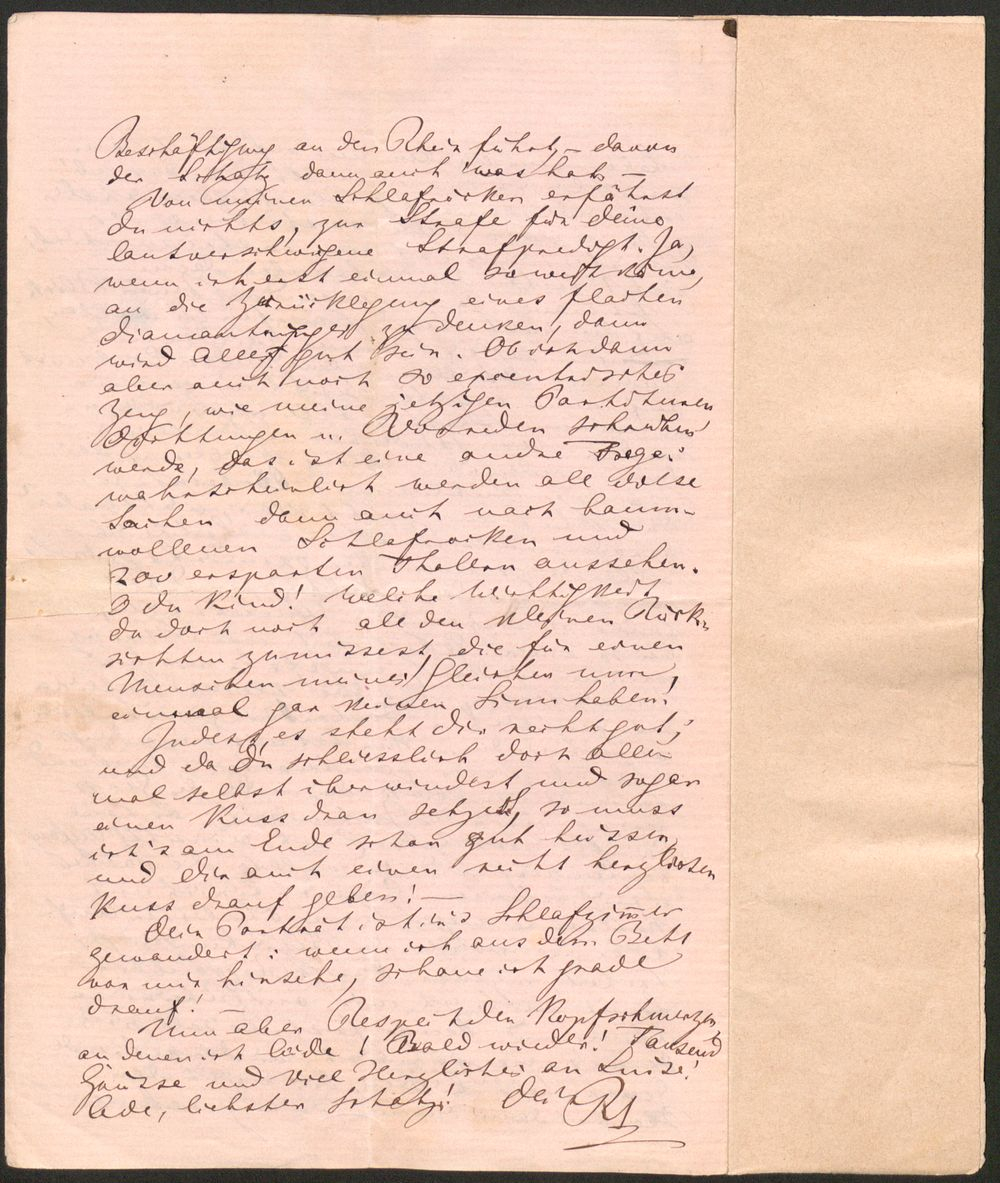 Beschäftigung an den Rhein führt, – davon
der Schatz dann auch was hat. –
Von meinen Schlafröcken erfährst
du nichts, zur Strafe für deine
lautverschwiegene Strafpredigt. Ja,
wenn ich erst einmal so weit käme,
an die Zurücklegung eines flachen
Diamantringes zu denken, dann
wird Alles gut sein. Ob ich dann
aber auch noch so excentrisches
Zeug, wie meine jetzigen Partituren
Dichtungen u. schreiben
werde, das ist eine andre Frage:
wahrscheinlich werden all diese
Sachen dann auch nach baum-
wollenen Schlafrocken und
200 ersparten Thalern aussehen.
O du Kind! Welche Wichtigkeit
du doch noch all den kleinen Rück-
sichten zumissest, die für einen
Menschen meines Gleichen nun
einmal gar keinen Sinn haben!
Indess, es steht dir recht gut;
und da du schliesslich doch alle
mal selbst überwindest und sogar
einen Kuss dran setzest, so muss
ich's am Ende schon gut heissen,
und dir auch einen recht herzlichen
Kuss drauf geben! –
Dein Porträt ist in's Schlafzimmer
gewandert: wenn ich aus dem Bett
vor mir hinsehe, schaue ich grade
drauf!
Nun aber Respect den Kopfschmerzen,
an denen ich leide! Bald wieder! Tausend
Grüsse und viel Herzliches an Luise!
Ade, liebster Schatz! Dein R